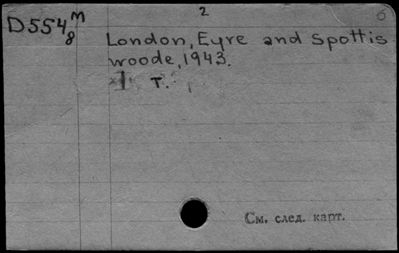 2
6
D554 M
8
London, Eyre and Spottis
woode, 1943.
1 т.
См. след. карт.